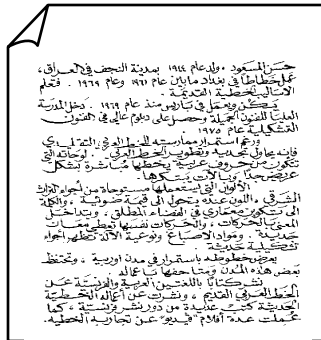 حسن المسعود . ولد عام ١٩٤٤ بمدينة النجف في العراق ،
عمل خطاطا في بغداد ما بين عام ١٩٦١ و عام ١٩٦٩ . فتعلم
الاساليب الخطية القديمة .
يسكن ويعمل في باريس منذ عام ١٩٦٩ . دخل المدرسة
العليا للفنون الجميلة وحصل على دبلوم عالي في الفنون
التشكيلية عام ١٩٧٥ .
ورغم استمرار ممارسته للخط العربي التقليدي
فإنه يحاول تجديد وتطوير الخط العربي . لوحاته التي
تتكون من حروف عربية يخطها مباشرة بشكل
عريض جدا وبآلات يبتكرها .
الألوان التي يستعملها مستوحاة من أجواء التراث
الشرقي ، اللون عنده يتحول الى قيمة ضوئية ، والكلمة
الى تكوين معماري في الفضاء المطلق ، ويتداخل
المعنى بالحركات ، والحركات نفسها تعطي معان
جديدة . ومواد الاصباغ ونوعية الآلة تظهر اجواء
تشكيلية حديثة .
يعرض خطوطه باستمرار في مدن أوربية ، وتحتفظ
بعض هذه المدن ومتاحفها باعماله .
نشر كتابا باللغتين العربية والفرنسية عن
الخط العربي القديم ، ونشرت عن أعماله الخطية
الحديثة كتب عديدة من دور نشر فرنسية ، كما
عملت عدة أفلام "فيديو" عن تجاربه الخطية .